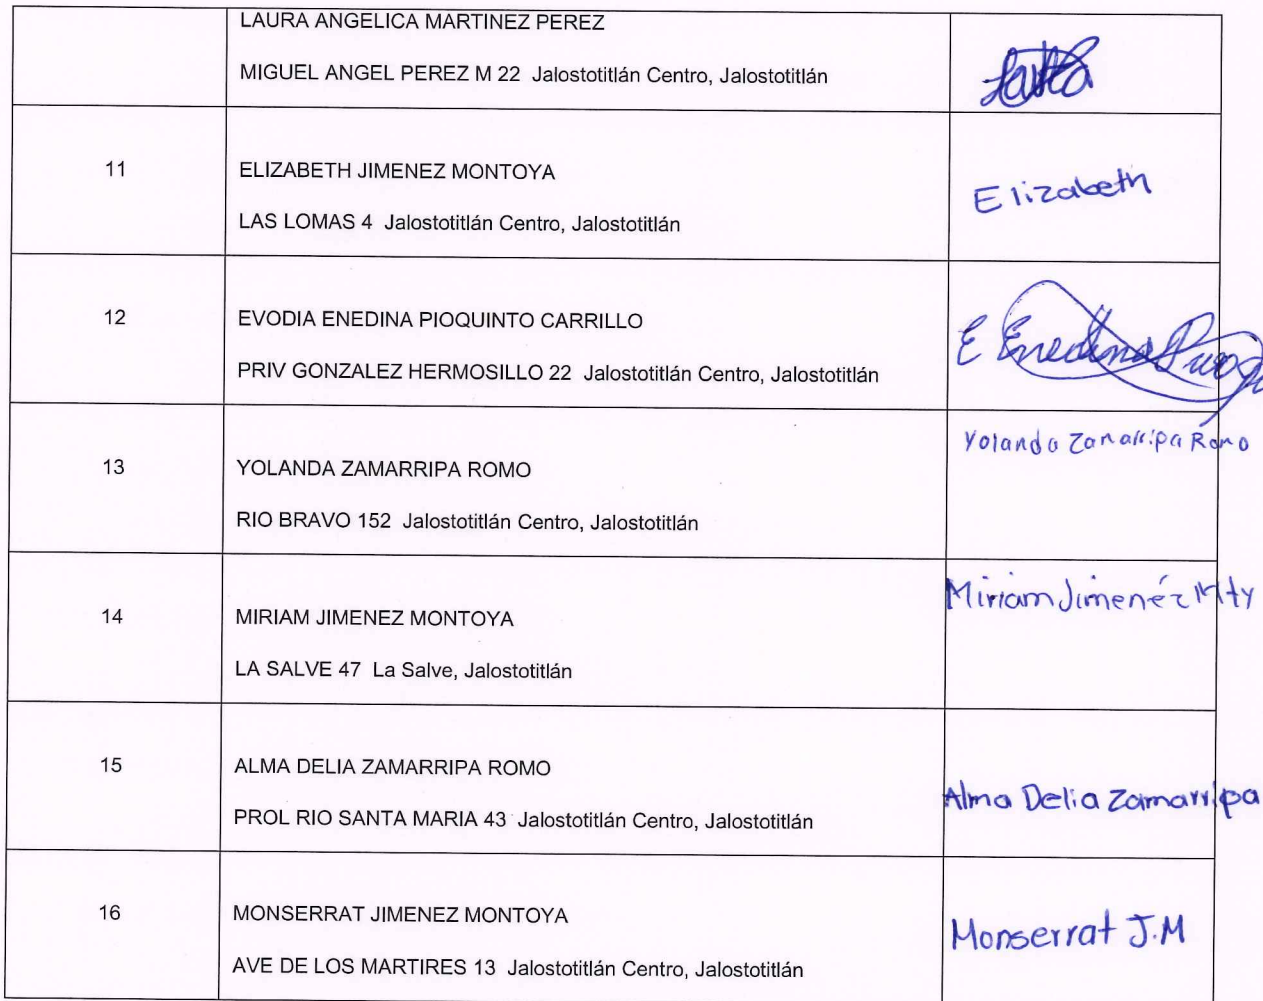 LAURA ANGELICA MARTINEZ PEREZ
MIGUEL ANGEL PEREZ M 22 Jalostotitlán Centro, Jalostotitlán
11
ELIZABETH JIMENEZ MONTOYA
LAS LOMAS 4 Jalostotitlán Centro, Jalostotitlán
Elizabeth
12
EVODIA ENEDINA PIOQUINTO CARRILLO
PRIV GONZALEZ HERMOSILLO 22 Jalostotitlán Centro, Jalostotitlán
E Enedina
13
YOLANDA ZAMARRIPA ROMO
RIO BRAVO 152 Jalostotitlán Centro, Jalostotitlán
Yolanda Zamarripa Romo
14
MIRIAM JIMENEZ MONTOYA
LA SALVE 47 La Salve, Jalostotitlán
Miriam Jimenéz Mty
15
ALMA DELIA ZAMARRIPA ROMO
PROL RIO SANTA MARIA 43 Jalostotitlán Centro, Jalostotitlán
Alma Delia Zamarripa
16
MONSERRAT JIMENEZ MONTOYA
AVE DE LOS MARTIRES 13 Jalostotitlán Centro, Jalostotitlán
Monserrat J.M